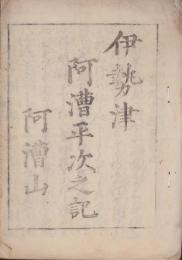 伊勢津
阿漕平次之記
阿漕山